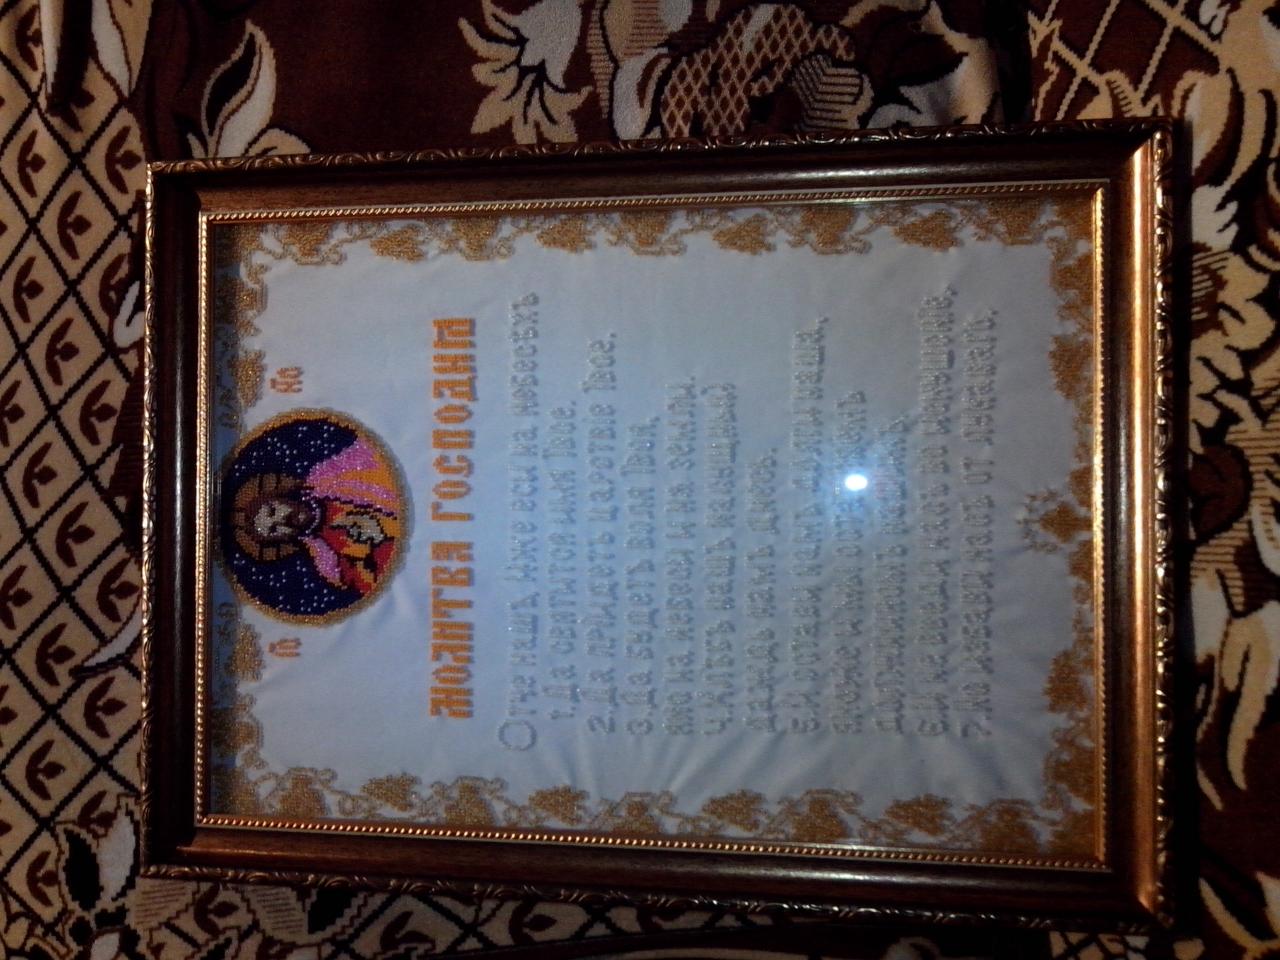 МОЛИТВА ГОСПОДНЯ
Отче нашъ, Иже еси на небесѣхъ
1.Да святится имя Твое.
2.Да прїидетъ царствіе Твое.
3.Да будетъ воля Твоя,
яко на небеси и на земли.
4.Хлѣбъ нашъ насущный
даждь намъ днесь.
5.И остави намъ долги наша,
якоже и мы
должникомъ нашим
6.И не введи насъ во искушеніе,
7.Но избави насъ от лукаваго.